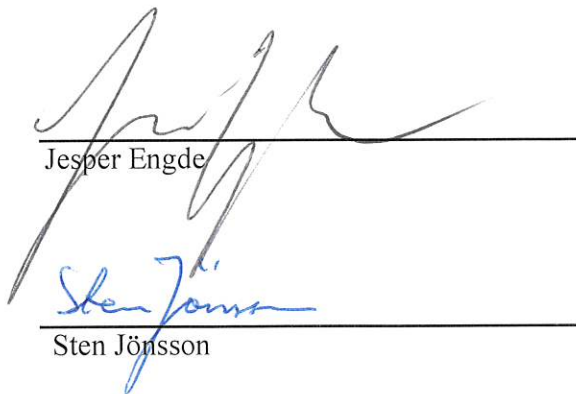 Jesper Engde
Sten Jönsson
Sten Jönsson